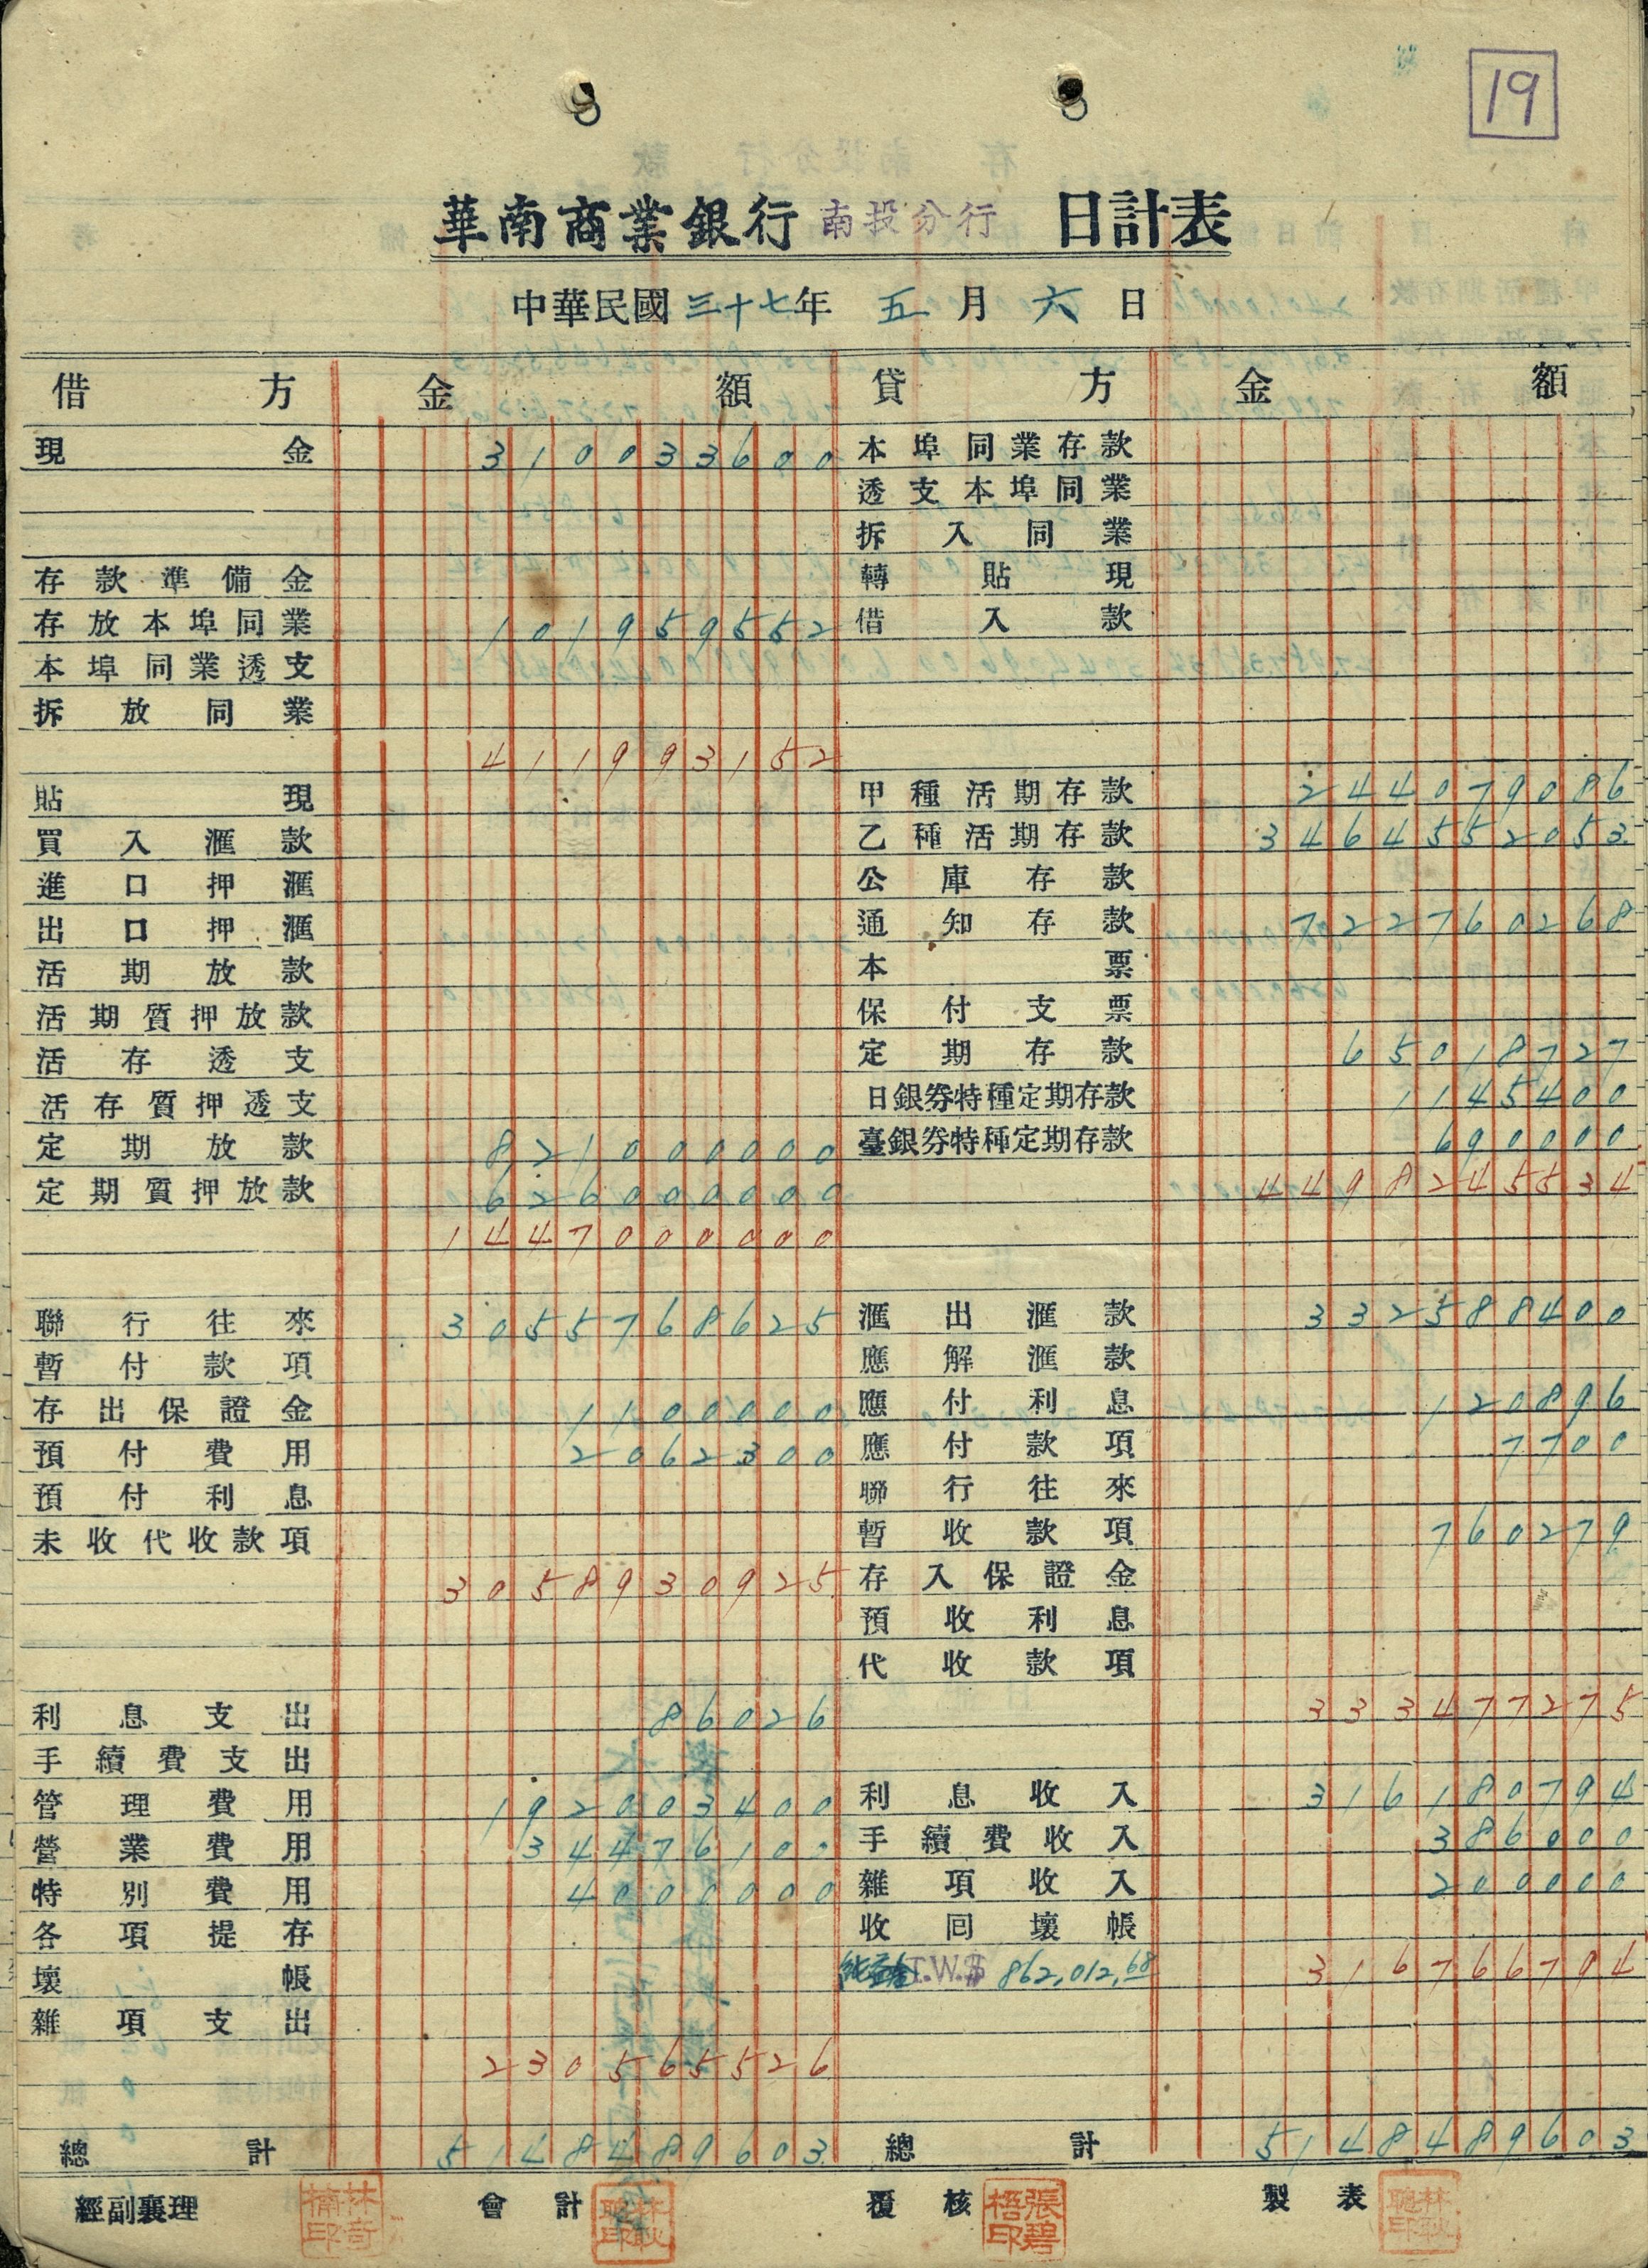 19
華南商業銀行 南投分行 日計表
中華民國三十七年 五月六日
借方 金額 貸方 金額
現金 310033600 本埠同業存款
透支本埠同業
拆入同業
存款準備金 轉貼現
存放本埠同業 101959552 借入款
本埠同業透支
拆放同業
411993152
貼現 甲種活期存款 244079086
買入滙款 乙種活期存款 3464552053
進口押滙 公庫存款
出口押滙 通知存款 722760268
活期放款 本票
活期質押放款 保付支票
活存透支 定期存款 65018727
活存質押透支 日銀券特種定期存款 1145400
定期放款 821000000 臺銀券特種定期存款 690000
定期質押放款 626000000 4498245534
1447000000
聯行往來 3055768625 滙出滙款 332588400
暫付款項 應解滙款
存出保證金 1100000 應付利息 120896
預付費用 2062300 應付款項 7700
預付利息 聯行往來
未收代收款項 暫收款項 760279
3058930925 存入保證金
預收利息
代收款項
利息支出 86026 333477275
手續費支出
管理費用 192003400 利息收入 316180794
營業費用 34476100 手續費收入 386000
特別費用 4000000 雜項收入 200000
各項提存 收回壞帳
壞帳 純益金 T.W.$ 862,012.68 316766794
雜項支出
230565526
總計 5148489603 總計 5148489603
經副襄理 會計 林耿聰印 覆核 張碧梧印 製表 林耿聰印